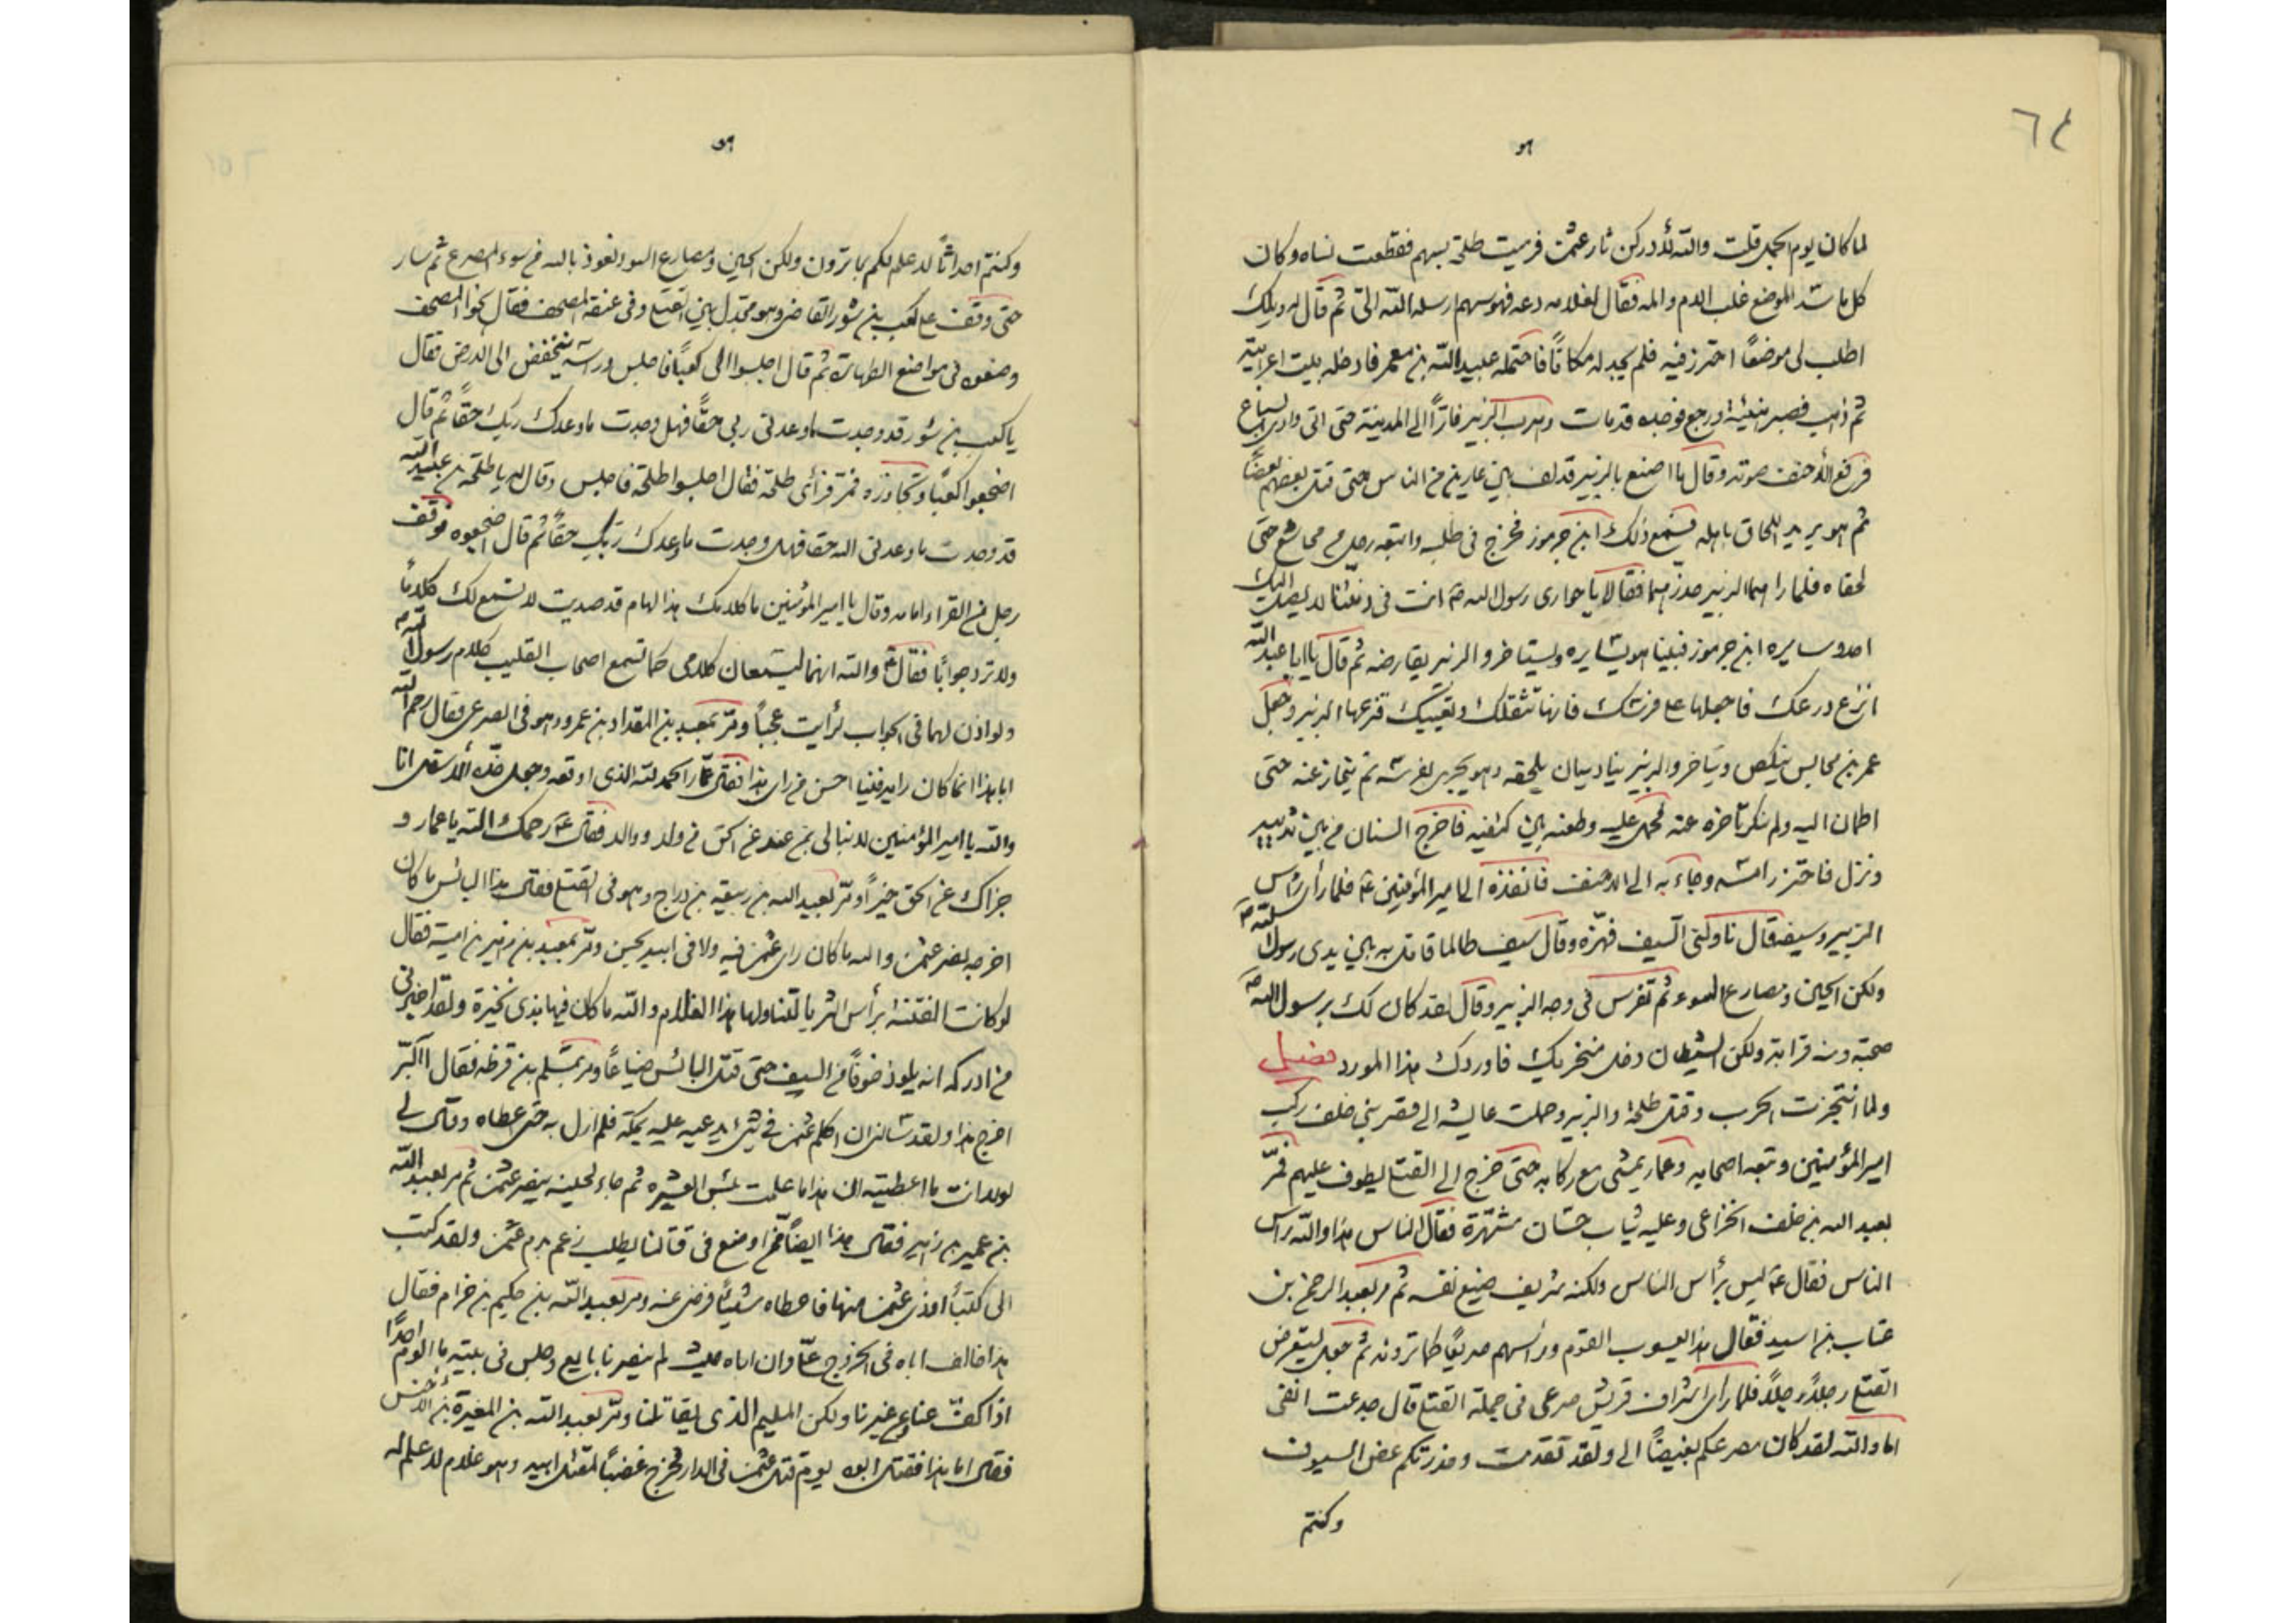 ٦٤
هو
لما كان يوم الجمل قلت والله لأدركن ثار عثمن فرميت طلحة بسهم فقطعت نساه وكان
كلما شد الموضع غلب الدم والمه فقال لغلامه دعه فهو سهم ارسله الله الىّ ثم قال له ويلك
اطلب لى موضعاً احترز فيه فلم يجد له مكاناً فاحتمله عبيد الله بن معمر فادخله بيت اعرابية
ثم ذهب فصبر هنيئة ورجع فوجده قد مات وهرب الزبير فارّاً الى المدينة حتى اتى وادى السباع
فرفع الأحنف صوته وقال ما اصنع بالزبير قد لف بين غارين من الناس حتى قتل بعضهم بعضاً
ثم هو يريد اللحاق باهله فسمع ذلك ابن جرموز فخرج فى طلبه واتبعه رجل من مجاشع حتى
لحقاه فلما راهما الزبير حذرهما فقالا يا حوارى رسول الله ص انت فى ذمتنا لا يصل اليك
احد وسايره ابن جرموز فبينا هو يسايره ويستاخر والزبير يفارضه ثم قال يا ابا عبد الله
انزع درعك فاجعلها على فرسك فانها تثقلك وتعييك فنزعها الزبير وجعل
عمر بن جالس ينكص ويتاخر والزبير يناديه ان يلحقه وهو يجرى بفرسه ثم ينحاز عنه حتى
اطمان اليه ولم ينكر تاخره عنه فحمل عليه وطعنه بين كتفيه فاخرج السنان من بين ثدييه
ونزل فاحتز راسه وجاء به الى الاحنف فانفذه الى امير المؤمنين ع فلما رأى رأس
الزبير وسيفه قال ناولنى السيف فهزّه وقال سيف طالما قاتل به بين يدى رسول الله ص
ولكن الحين ومصارع السوء ثم تفرس فى وجه الزبير وقال لقد كان لك برسول الله ص
صحبة ومنه قرابة ولكن الشيطان دخل منخريك فاوردك هذا المورد فصل
ولما انتجزت الحرب وقتل طلحة والزبير وحملت عايشه الى قصر بنى خلف ركب
امير المؤمنين وتبعه اصحابه وعمار يمشى مع ركابه حتى خرج الى القتلى يطوف عليهم فمرّ
بعبد الله بن خلف الخزاعى وعليه ثياب حسان مشهّرة فقال الناس هذا والله راس
الناس فقال ع ليس برأس الناس ولكنه شريف منيع نفسه ثم مر بعبد الرحمن بن
عتاب بن اسيد فقال هذا يعسوب القوم ورأسهم صريعا كما ترونه ثم جعل يستعرض
القتلى رجلاً رجلاً فلما راى اشراف قريش صرعى فى جملة القتلى قال جدعت انفى
اما والله لقد كان مصرعكم بغيضاً الى ولقد تقدمت وحذرتكم عض السيوف
وكنتم
هو
وكنتم احداثاً لا علم لكم بما ترون ولكن الحين ومصارع السوء نعوذ بالله من سوء المصرع ثم سار
حتى وقف على كعب بن سور القاضى وهو مجدّل بين القتلى وفى عنقه المصحف فقال نحّوا المصحف
وضعوه فى مواضع الطهارة ثم قال اجلسوا الى كعباً فاجلس وراسه ينخفض الى الارض فقال
يا كعب بن سور قد وجدت ما وعدنى ربى حقاً فهل وجدت ما وعدك ربك حقاً ثم قال
اضجعوا كعباً وتجاوزه فمرّ فرأى طلحة فقال اجلسوا طلحة فاجلس وقال له يا طلحة بن عبيد الله
قد وجدت ما وعدنى الله حقا فهل وجدت ما وعدك ربك حقاً ثم قال اضجعوه فوقف
رجل من القراء امامه وقال يا امير المؤمنين ما كلامك هذا الهام قد صديت لا تسمع لك كلاماً
ولا ترد جواباً فقال ع والله انهما ليسمعان كلامى كما تسمع اصحاب القليب كلام رسول الله ص
ولو اذن لهما فى الجواب لرأيت عجباً ومرّ بمعبد بن المقداد بن عمرو وهو فى الصرعى فقال رحم الله
ابا هذا انما كان رايه فينا احسن من راى هذا فقال عمّار الحمد لله الذى اوقعه وجعل خدّه الأسفل انا
والله يا امير المؤمنين لا نبالى بمن عند عن الحق من ولد ووالد فقال ع رحمك الله يا عمار و
جزاك عن الحق خيراً ومرّ بعبد الله بن ربيعة بن دراج وهو فى القتلى فقال هذا البائس ما كان
اخرجه نصر عثمن والله ما كان راى عثمن فيه ولا فى ابيه بحسن ومرّ بمعبد بن زهير بن امية فقال
لو كانت الفتنة برأس الثريا لتناولها هذا الغلام والله ما كان فيها بذى نخيرة ولقد اخبرنى
من ادركه انه يلوذ خوفاً من السيف حتى قتل البائس ضياعاً ومر بمسلم بن قرظه فقال ا البرّ
اخرج هذا ولقد سالنى ان اكلم عثمن فى شئ يدعيه عليه بمكة فلم ازل به حتى اعطاه وقال لى
لولا انت ما اعطيته ان هذا ما علمت بئس العشيره ثم جاء لحينه ينصر عثمن ثم مر بعبد الله
بن عمير بن زهير فقال هذا ايضاً ممن اوضع فى قتالنا يطلب زعم بدم عثمن ولقد كتب
الى كتباً اوذى عثمن منها فاعطاه شيئاً فرضى عنه ومر بعبد الله بن حكيم بن حزام فقال
هذا خالف اباه فى الخروج علىّ وان اباه حيث لم ينصرنا بايع وجلس فى بيته ما الوم احداً
اذا كفّ عنا وعن غيرنا ولكن المليم الذى يقاتلنا ومرّ بعبد الله بن المغيرة بن الأخنس
فقال اما هذا فقتل ابوه يوم قتل عثمن فى الدار فخرج غضباً لمقتل ابيه وهو غلام لا علم له